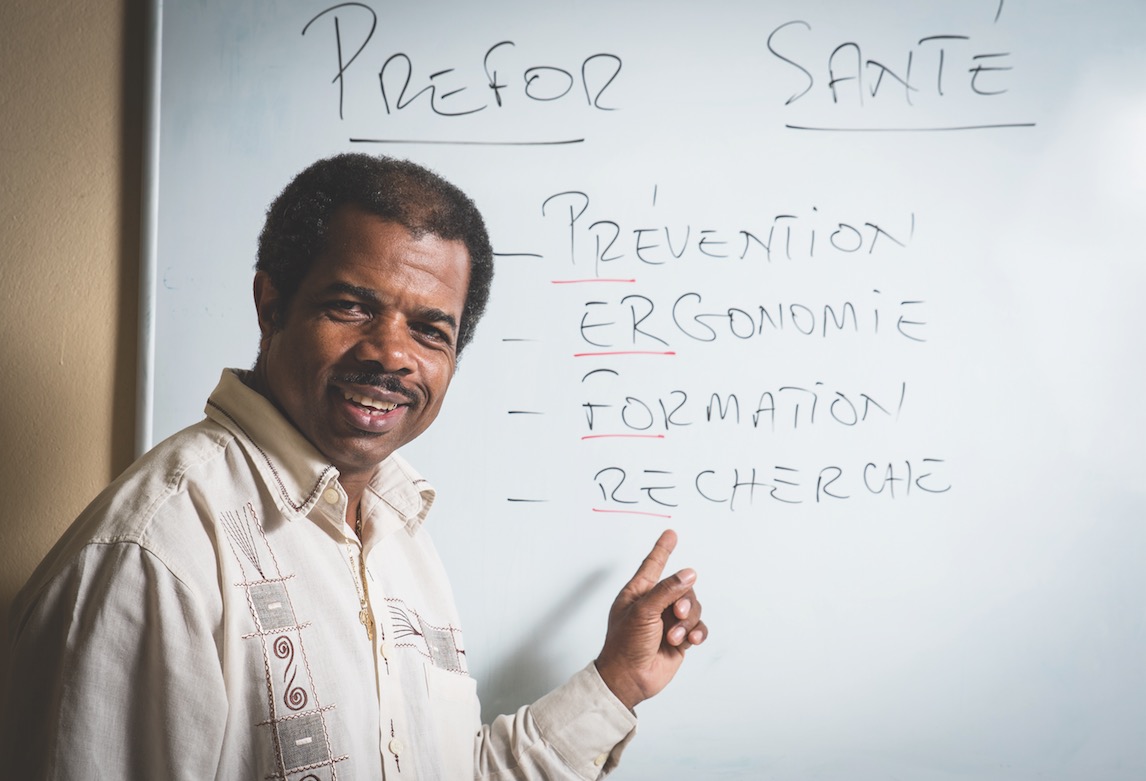 PREFOR SANTÉ
- PRÉVENTION
- ERGONOMiE
- FORMATiON
- RECHERCHE